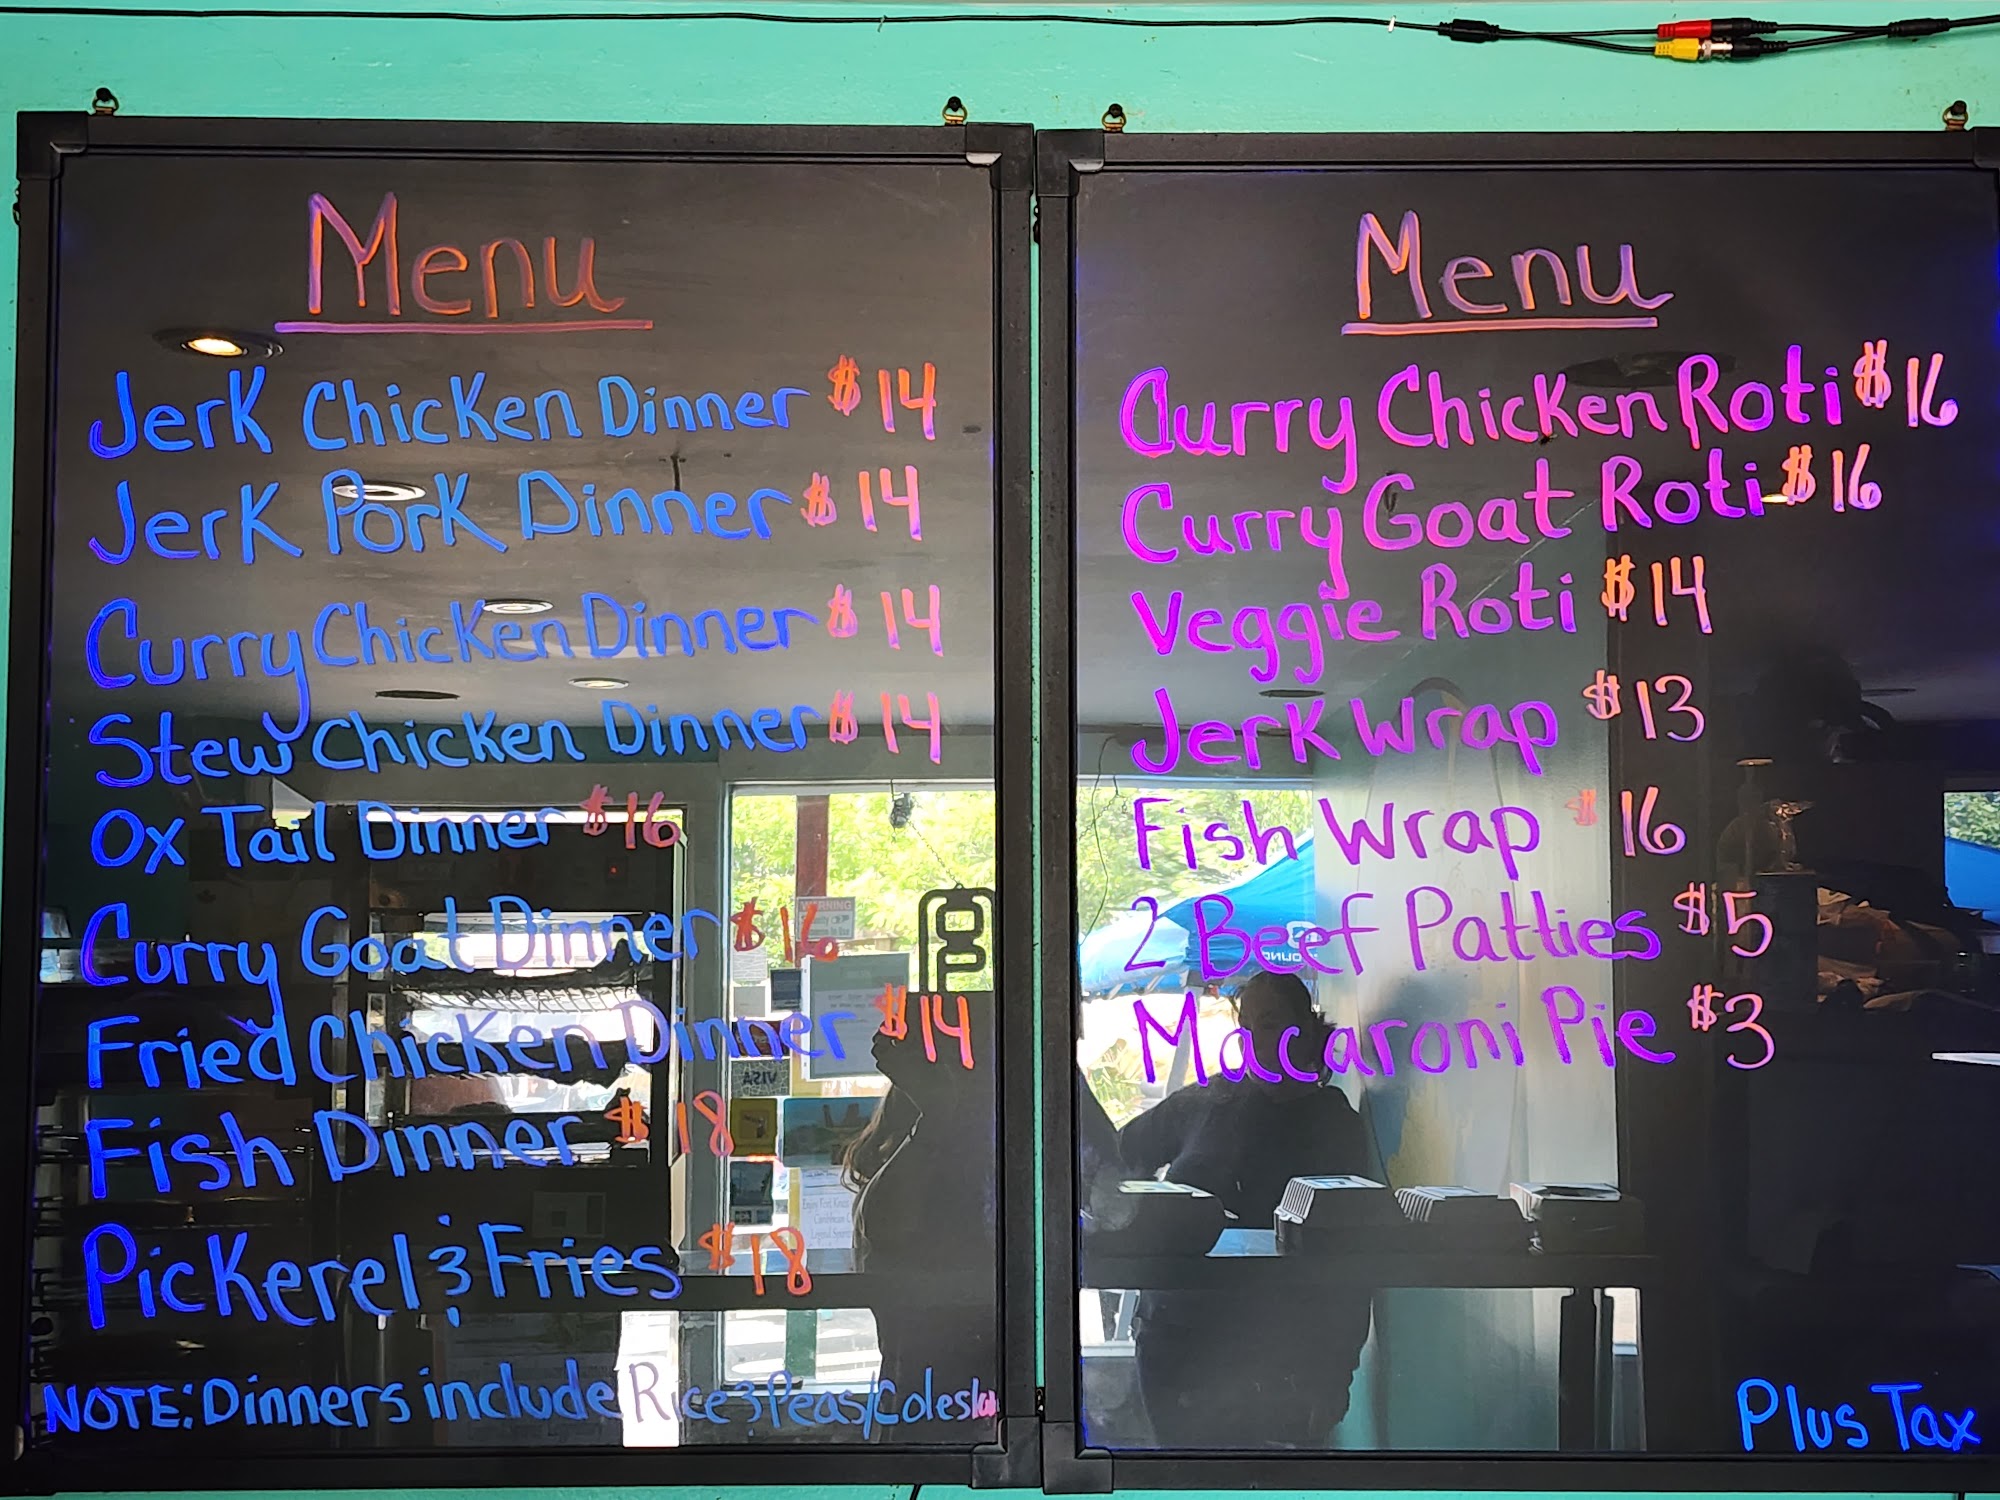 Menu
Jerk Chicken Dinner $14
Jerk Pork Dinner $14
Curry Chicken Dinner $14
Stew Chicken Dinner $14
Ox Tail Dinner $16
Curry Goat Dinner $16
Fried Chicken Dinner $14
Fish Dinner $18
Pickerel & Fries $18
NOTE: Dinners include Rice & Peas/Coleslaw
Menu
Curry Chicken Roti $16
Curry Goat Roti $16
Veggie Roti $14
Jerk Wrap $13
Fish Wrap $16
2 Beef Patties $5
Macaroni Pie $3
Plus Tax
WARNING
VISA